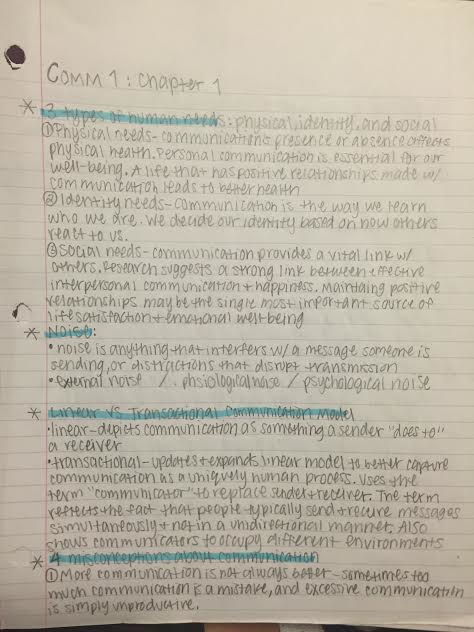 COMM 1: Chapter 1
* 3 types of human needs: physical, identity, and social
① Physical needs - communication's presence or absence affects
physical health. Personal communication is essential for our
well-being. A life that has positive relationships made w/
communication leads to better health
② Identity needs - communication is the way we learn
who we are. We decide our identity based on how others
react to us.
③ Social needs - communication provides a vital link w/
others. Research suggests a strong link between effective
interpersonal communication + happiness. Maintaing positive
relationships may be the single most important source of
life satisfaction + emotional well being
* NOISE:
• noise is anything that interfers w/ a message someone is
sending, or distractions that disrupt transmission
• external noise / phsiological noise / psychological noise
* Linear vs Transactional Communication Model
• linear - depicts communication as something a sender "does to"
a receiver
• transactional - updates + expands linear model to better capture
communication as a uniquely human process. Uses the
term "communicator" to replace sender + receiver. The term
reflects the fact that people typically send + receive messages
simultaneously + not in a unidirectional manner. Also
shows communicators to occupy different environments
* 4 misconceptions about communication
① More communication is not always better - sometimes too
much communication is a mistake, and excessive communication
is simply unproductive.